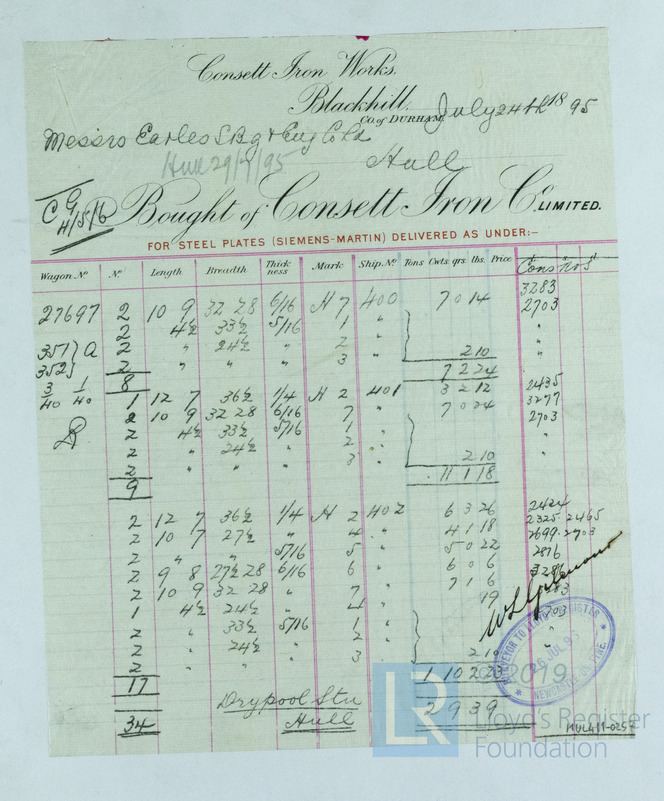 Consett Iron Works.
Blackhill.
Co. of DURHAM July 24th 1895
Messrs Earles S Bg & Eng Co Ld
Hull
Hull 29/7/95
C G
4/5/6
Bought of Consett Iron Co. LIMITED.
FOR STEEL PLATES (SIEMENS-MARTIN) DELIVERED AS UNDER:–
Wagon No No Length Breadth Thickness Mark Ship. No Tons Cwts qrs lbs. Price
27697 2 10 9 32 28 6/16 H 7 400 7 0 14 3283
2 4½ 33½ 5/16 1 " 2703
351 } a 2 " 24½ " 2 " "
352 } 2 " " " 3 " 2 10 "
3/40 1/40 8 7 2 24
1 12 7 36½ 1/4 H 2 401 3 2 12 2435
2 10 9 32 28 6/16 7 " 7 0 24 3277
2 4½ 33½ 5/16 1 " 2703
2 " 24½ " 2 " "
2 " " " 3 " 2 10 "
9 11 1 18
2 12 7 36½ 1/4 H 2 402 6 3 26 2424
2 10 7 27½ " 4 " 4 1 18 2325 2465
2 " " " 5/16 5 " 5 0 22 2699 2703
2 9 8 27½ 28 6/16 6 " 6 0 6 2876
2 10 9 32 28 " 7 " 7 1 6
1 4½ 24½ " 4 " 19
2 " 33½ 5/16 1 "
2 " 24½ " 2 "
2 " " " 3 " 2 10
17 1 10 2 23
34 Drypool Stn 2 9 3 9
Hull
SURVEYOR TO LLOYD'S REGISTER
26 JUL 95
NEWCASTLE ON TYNE.
LR
© 2019
Lloyd's Register
Foundation